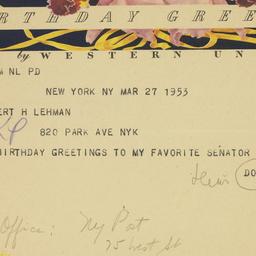 RTHDAY GREE
by WESTERN UN
M NL PD
NEW YORK NY MAR 27 1953
ERT H LEHMAN
820 PARK AVE NYK
BIRTHDAY GREETINGS TO MY FAVORITE SENATOR
DO
Office: Ny Post
75 West St